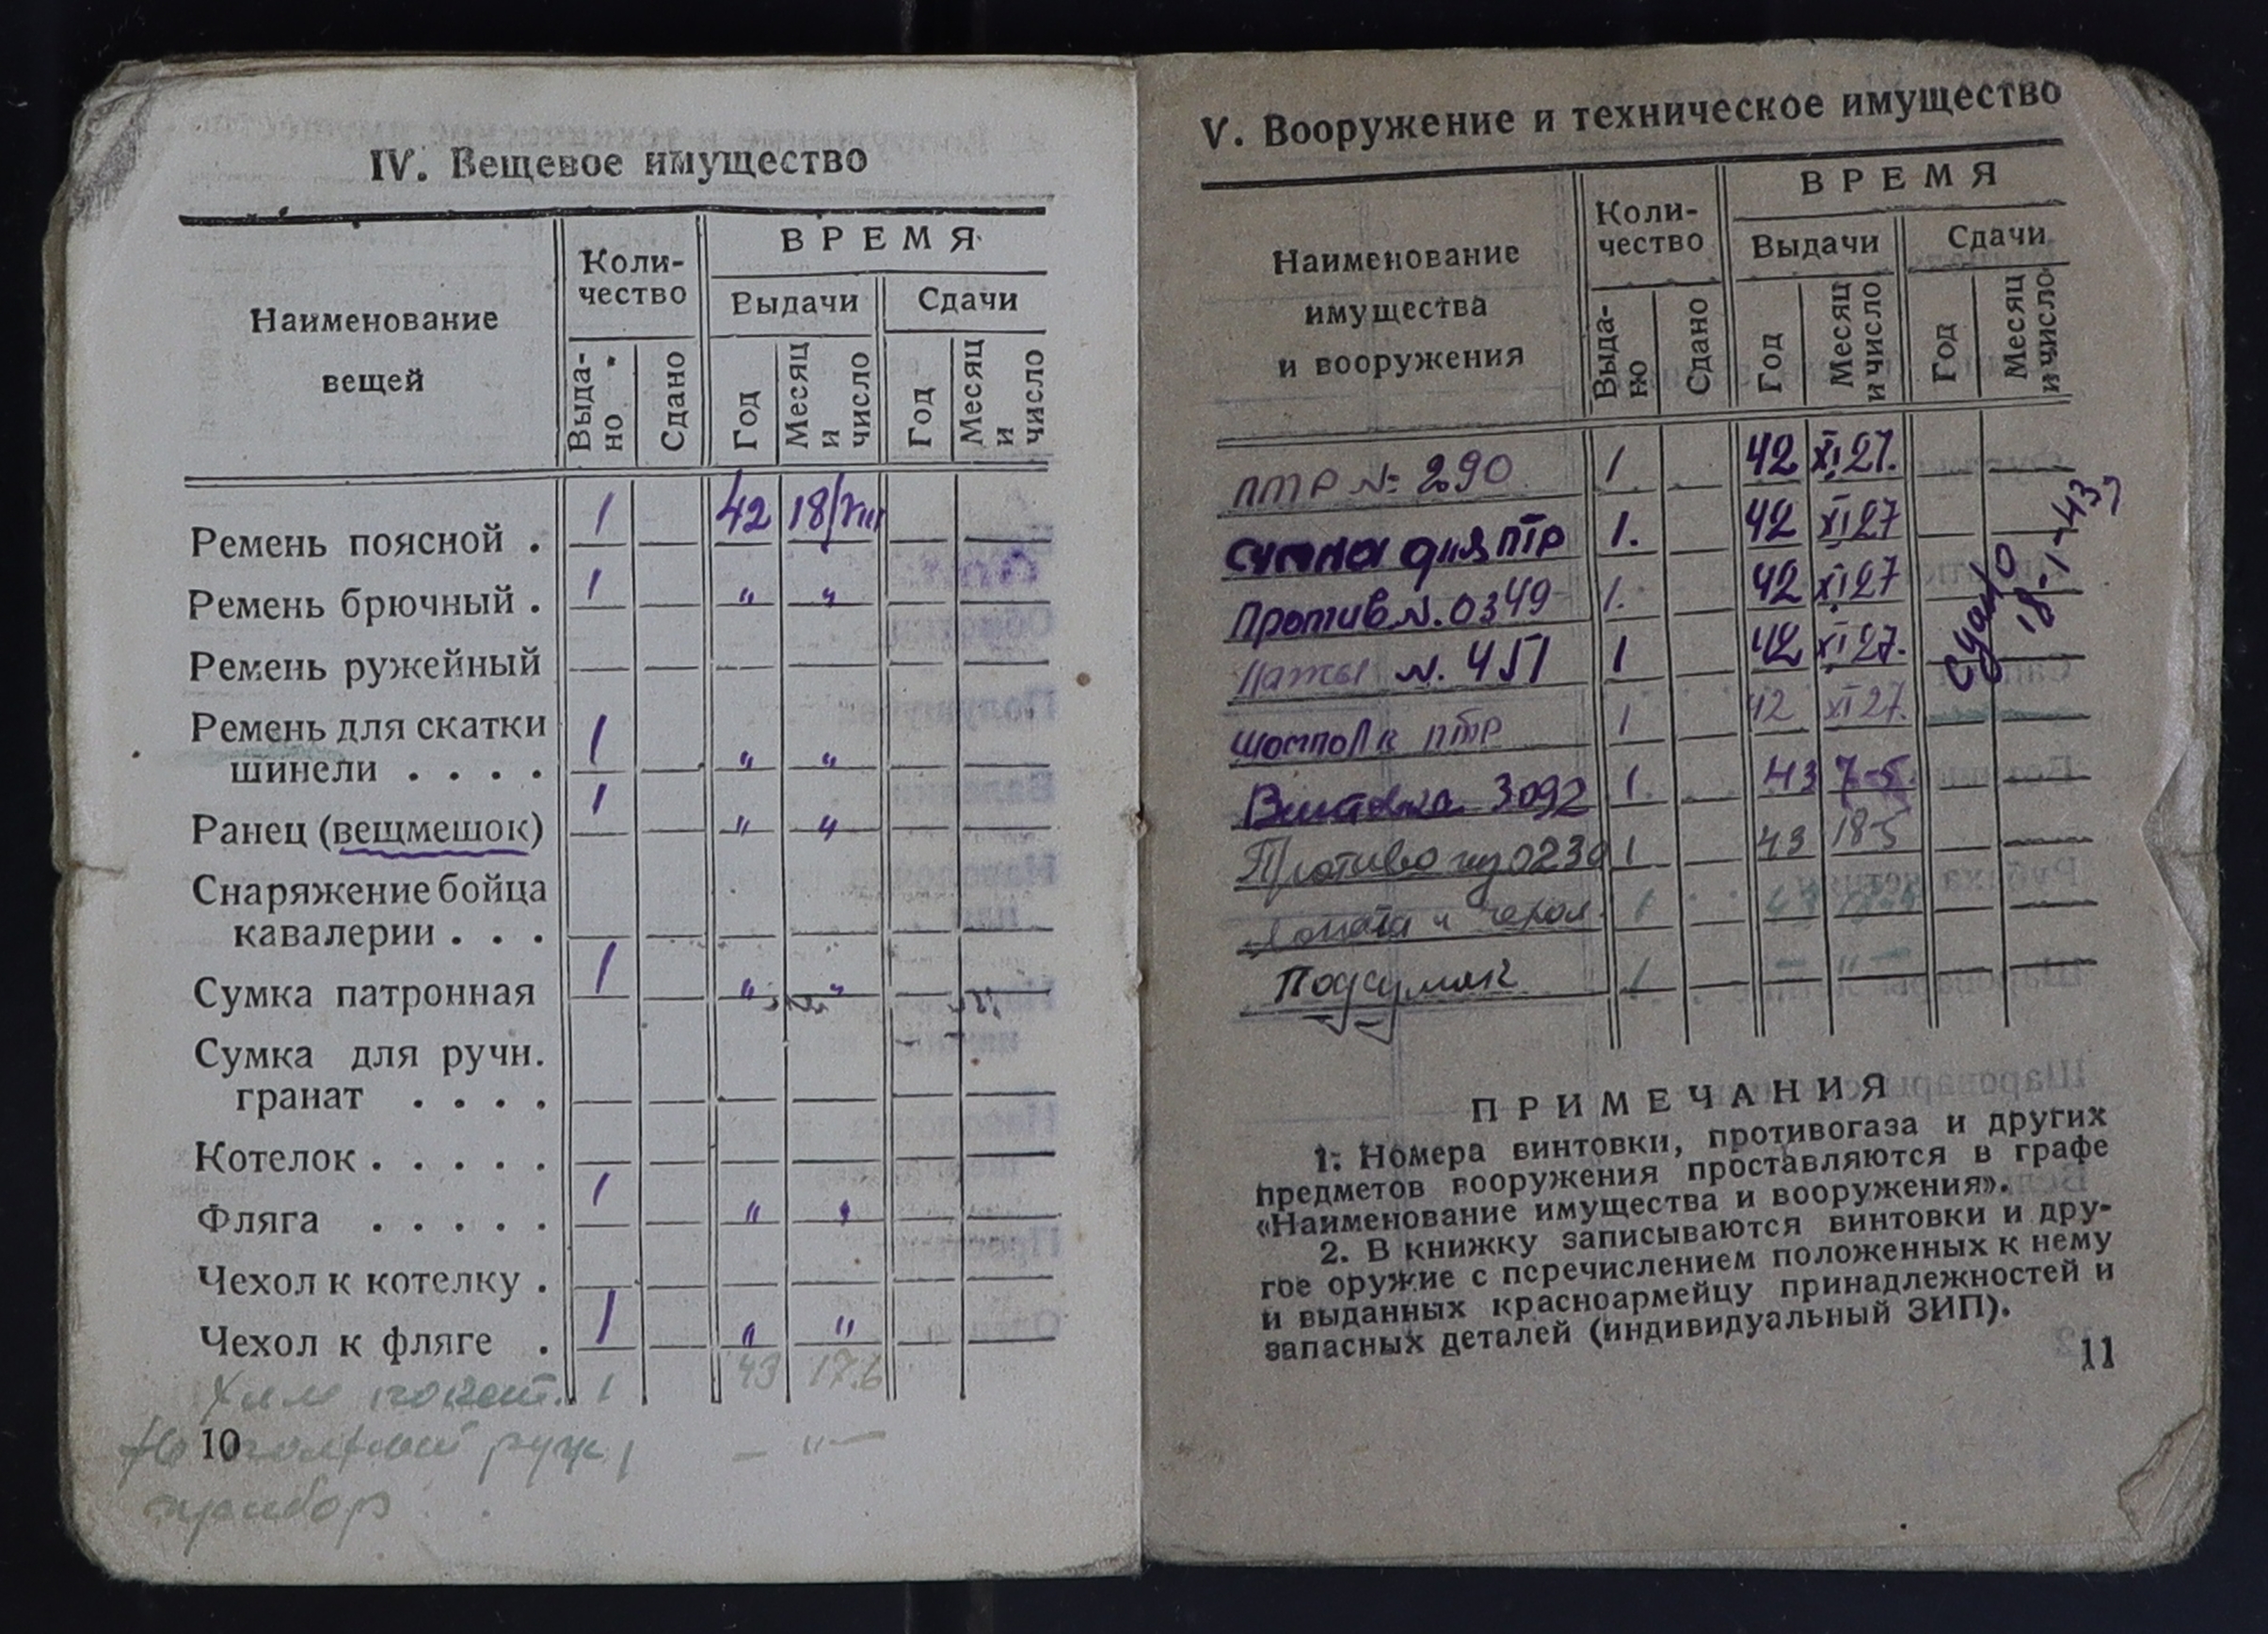 IV. Вещевое имущество
Наименование вещей
Коли-
чество
ВРЕМЯ
Выдачи
Сдачи
Выда-
но
Сдано
Год
Месяц
и
число
Год
Месяц
и
число
Ремень поясной . 1 42 18/VIII
Ремень брючный . 1 " "
Ремень ружейный
Ремень для скатки
шинели . . . . 1 " "
Ранец (вещмешок) 1 " "
Снаряжение бойца
кавалерии . . .
Сумка патронная 1 " "
Сумка для ручн.
гранат . . . .
Котелок . . . . .
Фляга . . . . . 1 " "
Чехол к котелку .
Чехол к фляге . 1 " "
Хим 1 43 17.6
руж 1 — " —
прибор
10
V. Вооружение и техническое имущество
Наименование
имущества
и вооружения
Коли-
чество
ВРЕМЯ
Выдачи
Сдачи
Выда-
но
Сдано
Год
Месяц
и число
Год
Месяц
и число
ПТР № 290 1 42 XI 27.
сумка для ПТР 1. 42 XI 27
Против N. 0349 1. 42 XI 27
N. 451 1 42 XI 27.
шомпол к ПТР 1 42 XI 27.
Сдано
18-1-43
Винтовка 3092 1. 43 7-5.
Противогаз 0230 1 43 18-5
Лопата и чехол 1
Подсумок 1 — " —
ПРИМЕЧАНИЯ
1. Номера винтовки, противогаза и других
предметов вооружения проставляются в графе
«Наименование имущества и вооружения».
2. В книжку записываются винтовки и дру-
гое оружие с перечислением положенных к нему
и выданных красноармейцу принадлежностей и
запасных деталей (индивидуальный ЗИП).
11